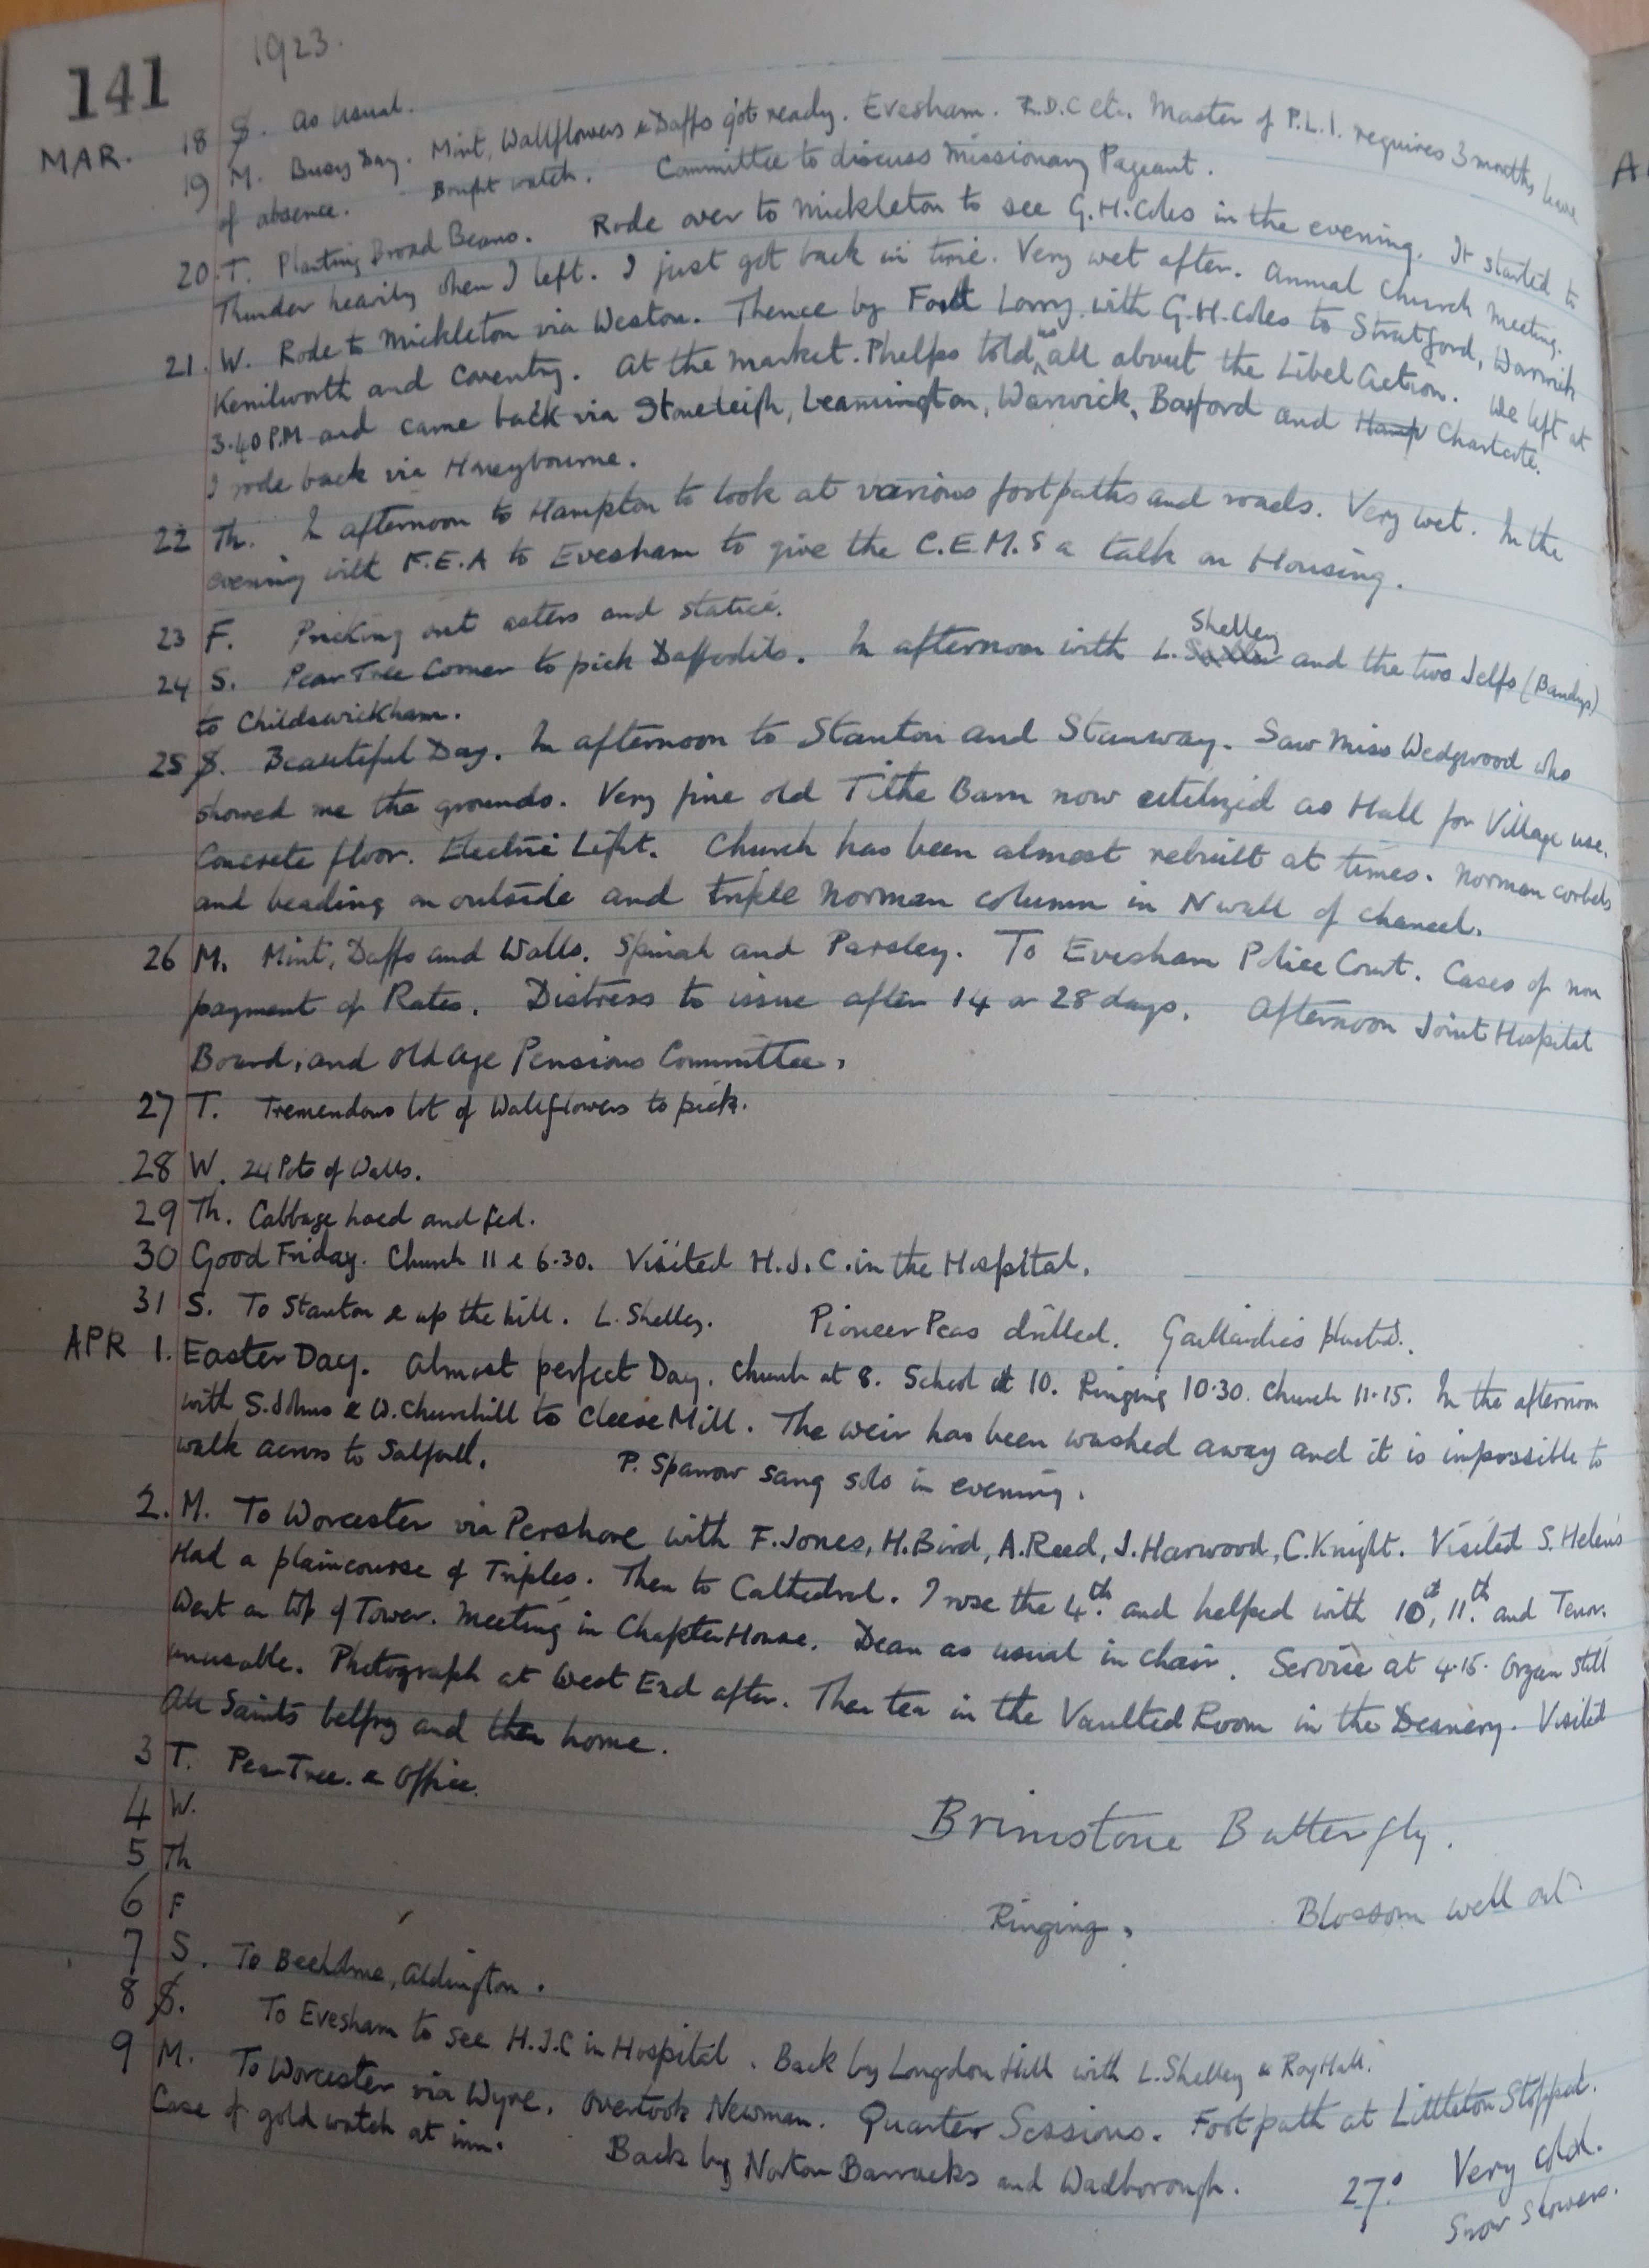 141
1923.
MAR. 18 S. As usual.
19 M. Busy Day. Mint, Wallflowers & Daffs got ready. Evesham. R.D.C etc. Master of P.L.I. requires 3 months leave
of absence. Bought watch. Committee to discuss Missionary Pageant.
20. T. Planting Broad Beans. Rode over to Mickleton to see G.H.Coles in the evening. It started to
Thunder heavily when I left. I just got back in time. Very wet after. Annual Church Meeting.
21. W. Rode to Mickleton via Weston. Thence by Ford Lorry with G.H.Coles to Stratford, Warwick
Kenilworth and Coventry. At the market. Phelps told us all about the Libel Action. We left at
3.40 P.M and came back via Stoneleigh, Leamington, Warwick, Barford and Hamp Charlecote.
I rode back via Honeybourne.
22 Th. In afternoon to Hampton to look at various footpaths and roads. Very wet. In the
evening with F.E.A to Evesham to give the C.E.M.S a talk on Housing.
23 F. Pricking out asters and statice.
24 S. Pear Tree Corner to pick Daffodils. In afternoon with L. Shelley and the two Jelfs (Bandys)
to Childswickham.
25 S. Beautiful Day. In afternoon to Stanton and Stanway. Saw Miss Wedgwood who
showed me the grounds. Very fine old Tithe Barn now utilized as Hall for Village use.
Concrete floor. Electric Light. Church has been almost rebuilt at times. Norman corbels
and beading on outside and triple Norman column in N wall of chancel.
26 M. Mint, Daffs and Walls. Spinah and Parsley. To Evesham Police Court. Cases of non
payment of Rates. Distress to issue after 14 or 28 days. Afternoon Joint Hospital
Board, and Old Age Pensions Committee.
27 T. Tremendous lot of Wallflowers to pick.
28 W. 24 Pots of Walls.
29 Th. Cabbage hoed and fed.
30 Good Friday. Church 11 & 6.30. Visited H.J.C. in the Hospital.
31 S. To Stanton & up the hill. L. Shelley. Pioneer Peas drilled. Gaillardias planted.
APR 1. Easter Day. Almost perfect Day. Church at 8. School at 10. Ringing 10.30. Church 11.15. In the afternoon
with S. Johns & W. Churchill to Cleeve Mill. The weir has been washed away and it is impossible to
walk across to Salford. P. Sparrow sang solo in evening.
2. M. To Worcester via Pershore with F. Jones, H. Bird, A. Reed, J. Harwood, C. Knight. Visited S. Helens
Had a plaincourse of Triples. Then to Cathedral. I rose the 4th. and helped with 10th, 11th. and Tenor.
Went on top of Tower. Meeting in Chapter House. Dean as usual in chair. Service at 4.15. Organ still
unusable. Photograph at West End after. Then tea in the Vaulted Room in the Deanery. Visited
All Saints belfry and then home.
3 T. Pear Tree. & Office.
4 W. Brimstone Butterfly.
5 Th
6 F Ringing. Blossom well out
7 S. To Beehome, Aldington.
8 S. To Evesham to see H.J.C in Hospital. Back by Longdon Hill with L. Shelley & Roy Hall.
9 M. To Worcester via Wyre. Overtook Newman. Quarter Sessions. Footpath at Littleton Stopped.
Case of gold watch at inn. Back by Norton Barracks and Wadborough. 27° Very cold.
Snow showers.